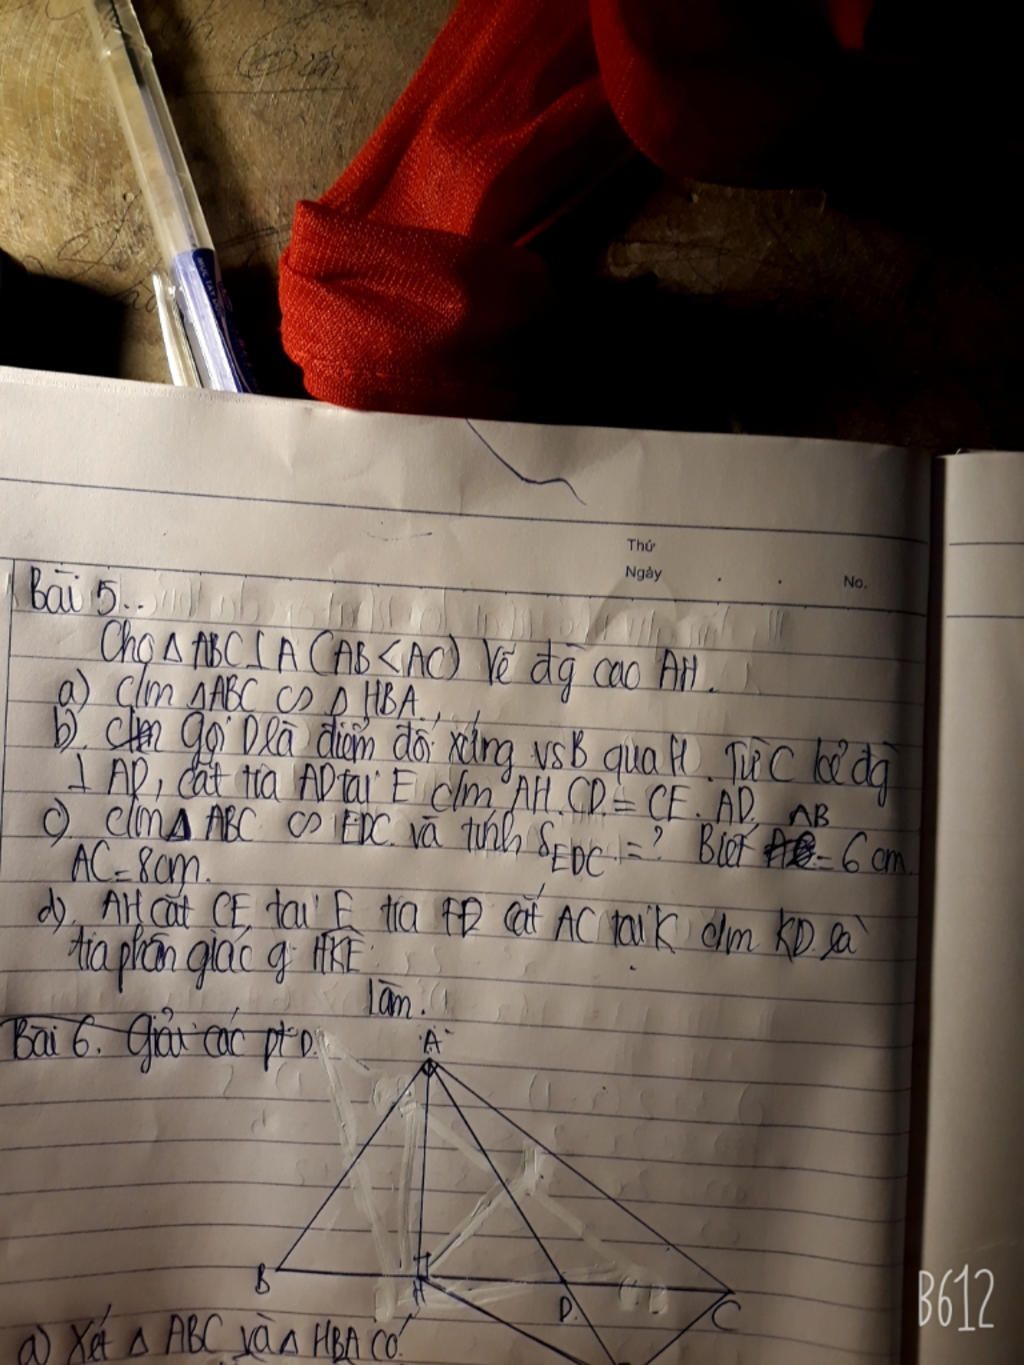 Thứ
Ngày . . No.
Bài 5..
Cho △ ABC ⊥ A (AB < AC) Vẽ đg cao AH.
a) C/m △ABC ∽ △ HBA.
b). Gọi D là điểm đối xứng vs B qua H. Từ C kẻ đg
⊥ AD, cắt tia AD tại E c/m AH.CD = CE.AD.
c) c/m △ ABC ∽ EDC và tính S EDC = ? Biết AB = 6 cm
AC = 8cm.
d). AH cắt CE tại F tia FD cắt AC tại K c/m KD là
tia phân giác g HKE
làm.
Bài 6. Giải các pt
A
B
H
D
C
a) Xét △ ABC và △ HBA có
B612